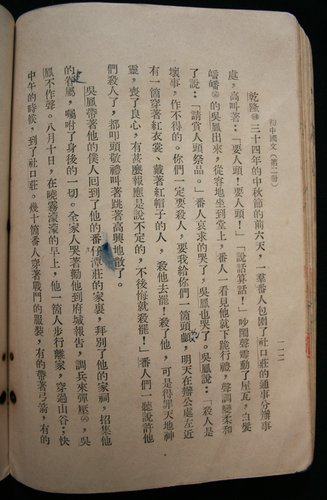 初中國文（第一冊）
一二一
乾隆㊽三十四年的中秋節的前六天，一羣番人包圍了社口莊的通事分辦事
處，高叫著：「要人頭！要人頭！」「說話算話！」吵鬧聲震動了屋瓦，白髮
皤皤㊾的吳鳳出來，從容地坐到堂上，番人一看見他就下跪行禮，聲調變柔和
了說：「請賞人頭祭品。」番人哀求的哭了，吳鳳也哭了。吳鳳說：「殺人是
壞事，作不得的。你們一定要殺人，要我給你們一箇頭顱，明天在辦公處左近
有一箇穿著紅衣裳、戴著紅帽子的人，殺他去罷！殺了他，可是得罪天地神
靈，喪了良心，有甚麼報應是說不定的，不後悔就殺罷！」番人們一聽說許他
們殺人了，都叩頭敬禮叫著跳著高興地散了。
吳鳳帶著他的僕人回到了他的番仔潭莊的家裏，拜別了他的家祠，招集他
的眷屬，囑咐了身後的一切。全家人哭著勸他到府城報告，調兵來彈壓，吳
鳳不作聲。八月十日，在曉霧濛濛的早上，他一箇人步行離家，穿過山谷；快
中午的時候，到了社口莊。幾十箇番人穿著戰鬥的服裝，有的帶著弓箭，有的